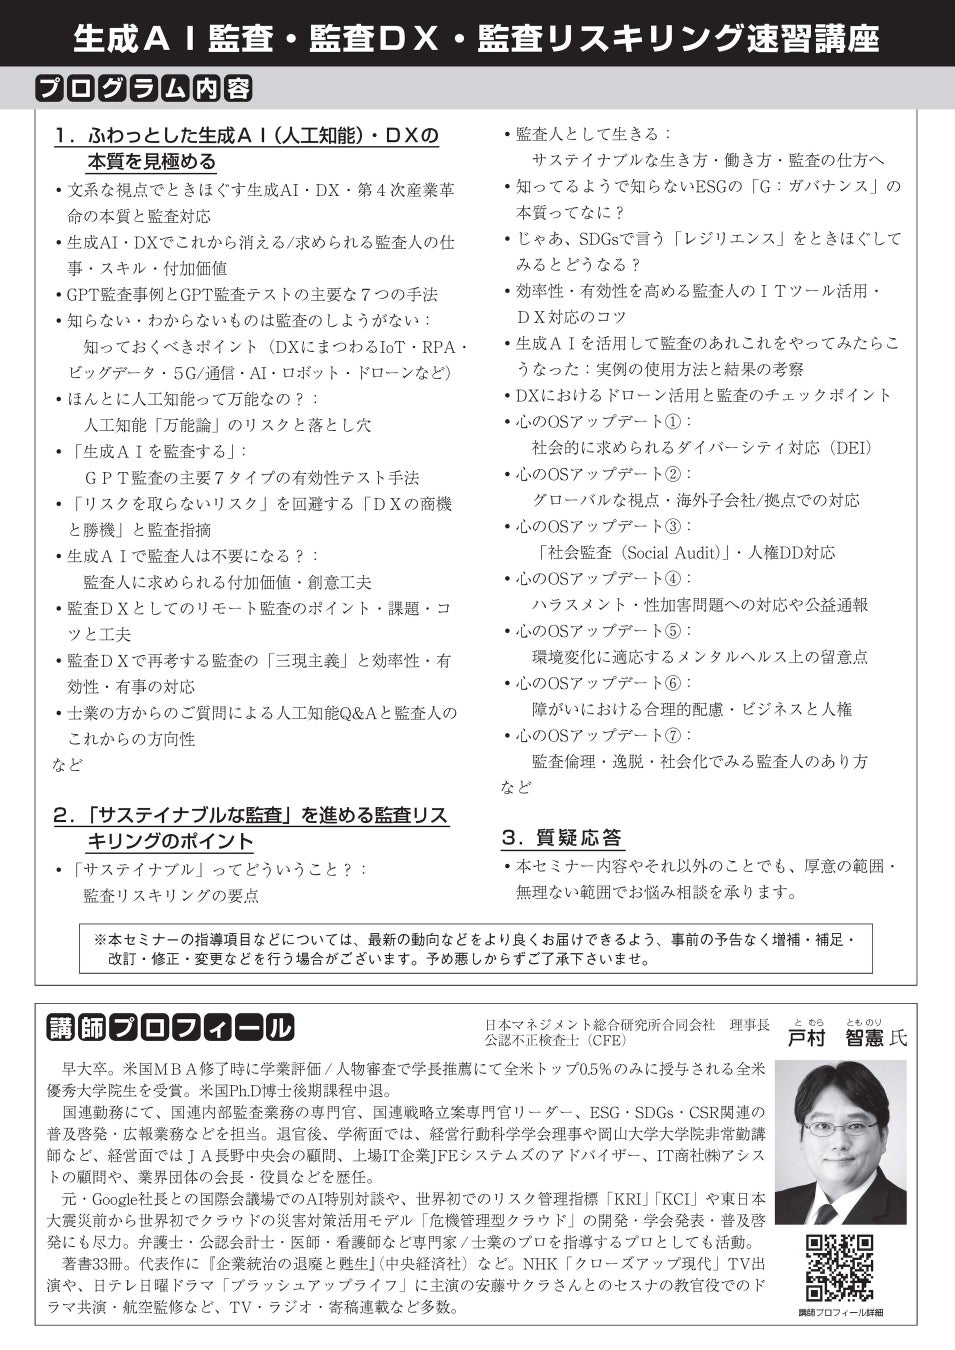 生成ＡＩ監査・監査ＤＸ・監査リスキリング速習講座
プログラム内容
１．ふわっとした生成ＡＩ（人工知能）・ＤＸの
本質を見極める
・文系な視点でときほぐす生成AI・DX・第４次産業革
命の本質と監査対応
・生成AI・DXでこれから消える/求められる監査人の仕
事・スキル・付加価値
・GPT監査事例とGPT監査テストの主要な７つの手法
・知らない・わからないものは監査のしようがない：
知っておくべきポイント（DXにまつわるIoT・RPA・
ビッグデータ・５G/通信・AI・ロボット・ドローンなど）
・ほんとに人工知能って万能なの？：
人工知能「万能論」のリスクと落とし穴
・「生成ＡＩを監査する」：
ＧＰＴ監査の主要７タイプの有効性テスト手法
・「リスクを取らないリスク」を回避する「ＤＸの商機
と勝機」と監査指摘
・生成ＡＩで監査人は不要になる？：
監査人に求められる付加価値・創意工夫
・監査ＤＸとしてのリモート監査のポイント・課題・コ
ツと工夫
・監査ＤＸで再考する監査の「三現主義」と効率性・有
効性・有事の対応
・士業の方からのご質問による人工知能Q&Aと監査人の
これからの方向性
など
２．「サステイナブルな監査」を進める監査リス
キリングのポイント
・「サステイナブル」ってどういうこと？：
監査リスキリングの要点
・監査人として生きる：
サステイナブルな生き方・働き方・監査の仕方へ
・知ってるようで知らないESGの「G：ガバナンス」の
本質ってなに？
・じゃあ、SDGsで言う「レジリエンス」をときほぐして
みるとどうなる？
・効率性・有効性を高める監査人のＩＴツール活用・
ＤＸ対応のコツ
・生成ＡＩを活用して監査のあれこれをやってみたらこ
うなった：実例の使用方法と結果の考察
・DXにおけるドローン活用と監査のチェックポイント
・心のOSアップデート①：
社会的に求められるダイバーシティ対応（DEI）
・心のOSアップデート②：
グローバルな視点・海外子会社/拠点での対応
・心のOSアップデート③：
「社会監査（Social Audit）」・人権DD対応
・心のOSアップデート④：
ハラスメント・性加害問題への対応や公益通報
・心のOSアップデート⑤：
環境変化に適応するメンタルヘルス上の留意点
・心のOSアップデート⑥：
障がいにおける合理的配慮・ビジネスと人権
・心のOSアップデート⑦：
監査倫理・逸脱・社会化でみる監査人のあり方
など
３．質疑応答
・本セミナー内容やそれ以外のことでも、厚意の範囲・
無理ない範囲でお悩み相談を承ります。
※本セミナーの指導項目などについては、最新の動向などをより良くお届けできるよう、事前の予告なく増補・補足・
改訂・修正・変更などを行う場合がございます。予め悪しからずご了承下さいませ。
講師プロフィール
日本マネジメント総合研究所合同会社　理事長
公認不正検査士（CFE）
と むら　とも のり
戸村　智憲 氏
早大卒。米国ＭＢＡ修了時に学業評価/人物審査で学長推薦にて全米トップ0.5％のみに授与される全米
優秀大学院生を受賞。米国Ph.D博士後期課程中退。
国連勤務にて、国連内部監査業務の専門官、国連戦略立案専門官リーダー、ESG・SDGs・CSR関連の
普及啓発・広報業務などを担当。退官後、学術面では、経営行動科学学会理事や岡山大学大学院非常勤講
師など、経営面ではＪＡ長野中央会の顧問、上場IT企業JFEシステムズのアドバイザー、IT商社㈱アシス
トの顧問や、業界団体の会長・役員などを歴任。
元・Google社長との国際会議場でのAI特別対談や、世界初でのリスク管理指標「KRI」「KCI」や東日本
大震災前から世界初でクラウドの災害対策活用モデル「危機管理型クラウド」の開発・学会発表・普及啓
発にも尽力。弁護士・公認会計士・医師・看護師など専門家/士業のプロを指導するプロとしても活動。
著書33冊。代表作に『企業統治の退廃と甦生』（中央経済社）など。NHK「クローズアップ現代」TV出
演や、日テレ日曜ドラマ「ブラッシュアップライフ」に主演の安藤サクラさんとのセスナの教官役でのド
ラマ共演・航空監修など、TV・ラジオ・寄稿連載など多数。
講師プロフィール詳細